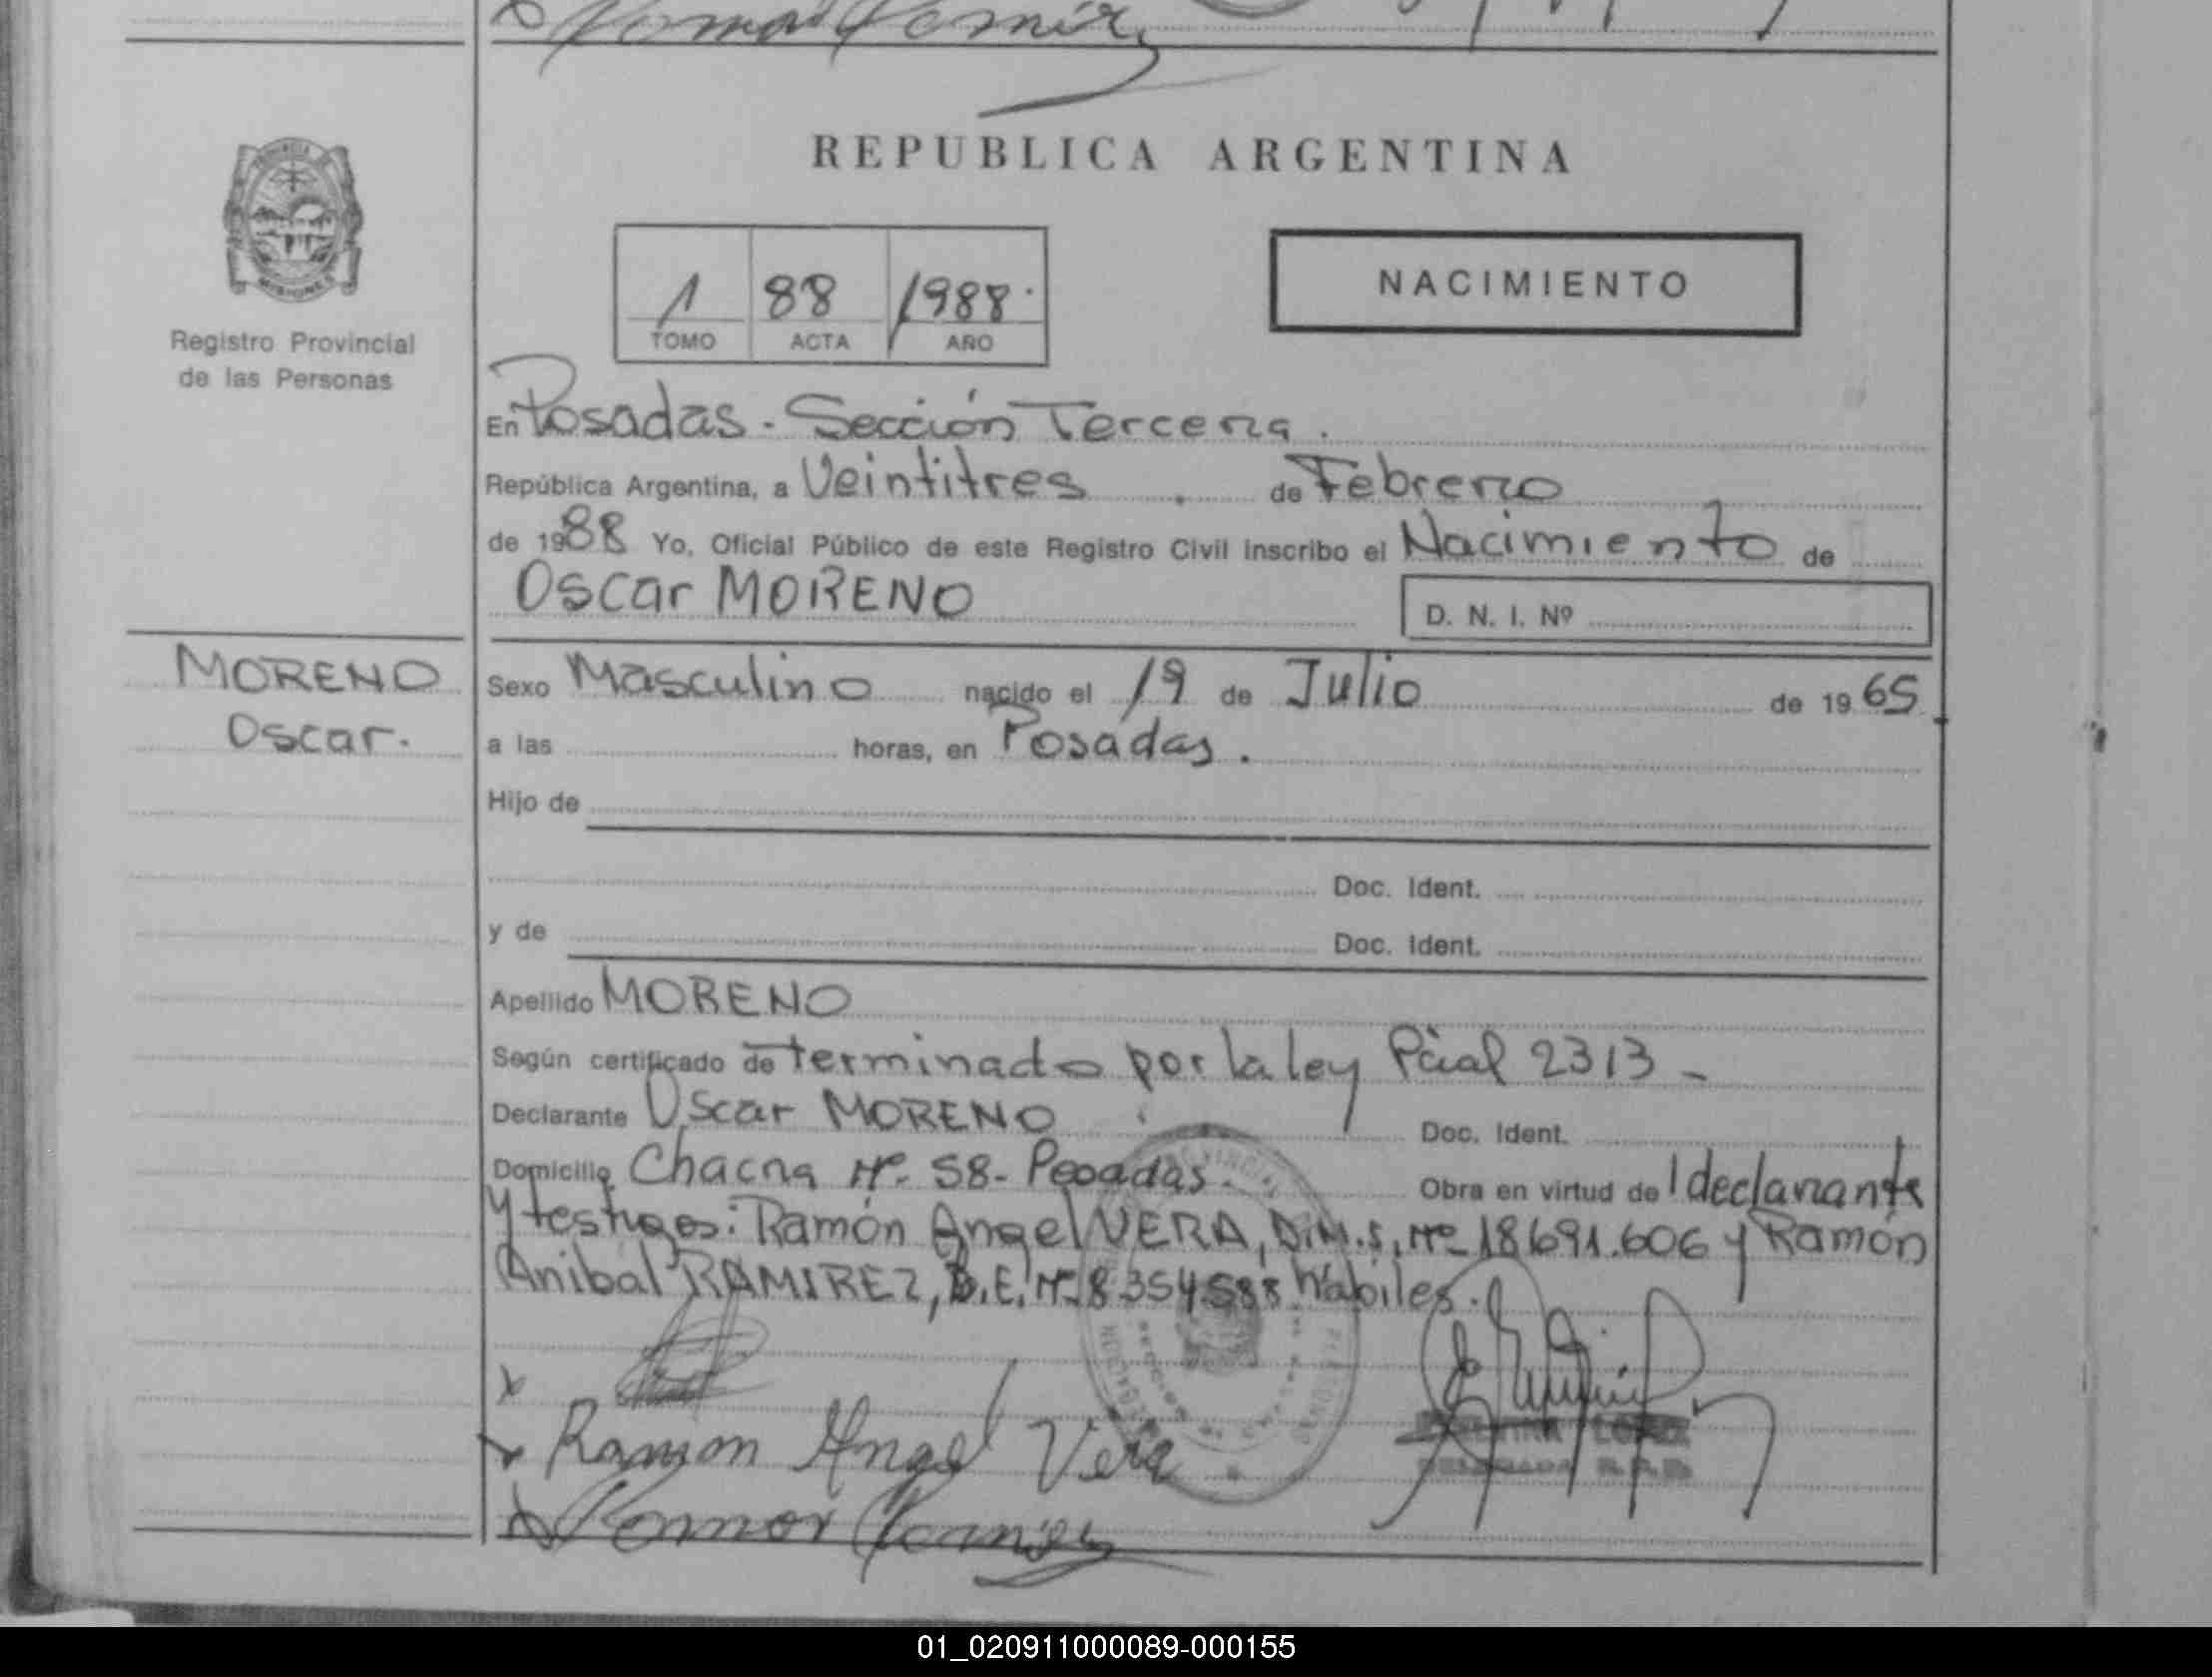 REPUBLICA ARGENTINA
MISIONES
Registro Provincial
de las Personas
1 88 1988.
TOMO ACTA AÑO
NACIMIENTO
En Posadas - Sección Tercera.
República Argentina, a Veintitres . de Febrero
de 1988 Yo, Oficial Público de este Registro Civil inscribo el Nacimiento de
Oscar MORENO
D. N. I. Nº
MORENO
Oscar.
Sexo Masculino nacido el 19 de Julio de 1965
a las horas, en Posadas.
Hijo de
Doc. Ident.
y de Doc. Ident.
Apellido MORENO
Según certificado determinado por la ley Pcial 2313 -
Declarante Oscar MORENO Doc. Ident.
Domicilio Chacra Nº 58 - Posadas. Obra en virtud de l declarante
y testigos: Ramón Angel VERA, D.N.I. Nº 18691.606 y Ramón
Anibal RAMIREZ, Nº 8.354.588 hábiles.
x
x Ramon Angel Vera
x
LOPEZ
DELEGADA R.P.P.
01_020911000089-000155